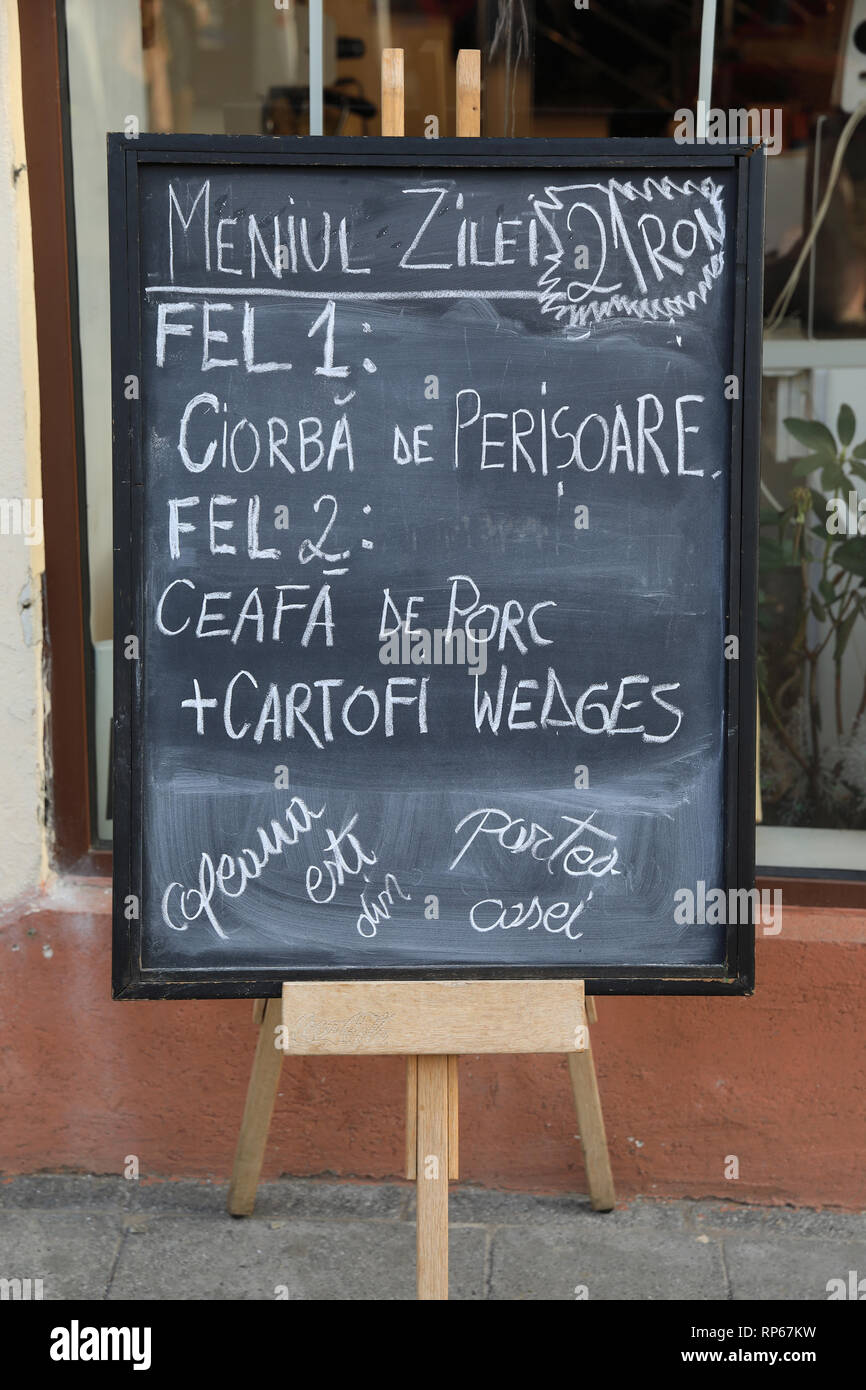 MENIUL ZILEI 21 RON
FEL 1:
CIORBĂ DE PERIȘOARE.
FEL 2:
CEAFĂ DE PORC
+ CARTOFI WEDGES
este din partea
casei
Coca-Cola
alamy
Image ID: RP67KW
www.alamy.com